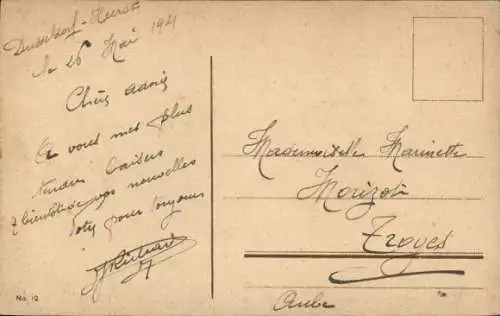 Dusseldorf - Heerdt
le 26 Mai 1921
Chère
A vous mes plus
tendres baisers
à bientôt de vos nouvelles
Votre pour toujours
Mademoiselle Marinette
Morizot
Troyes
Aube
No. 12